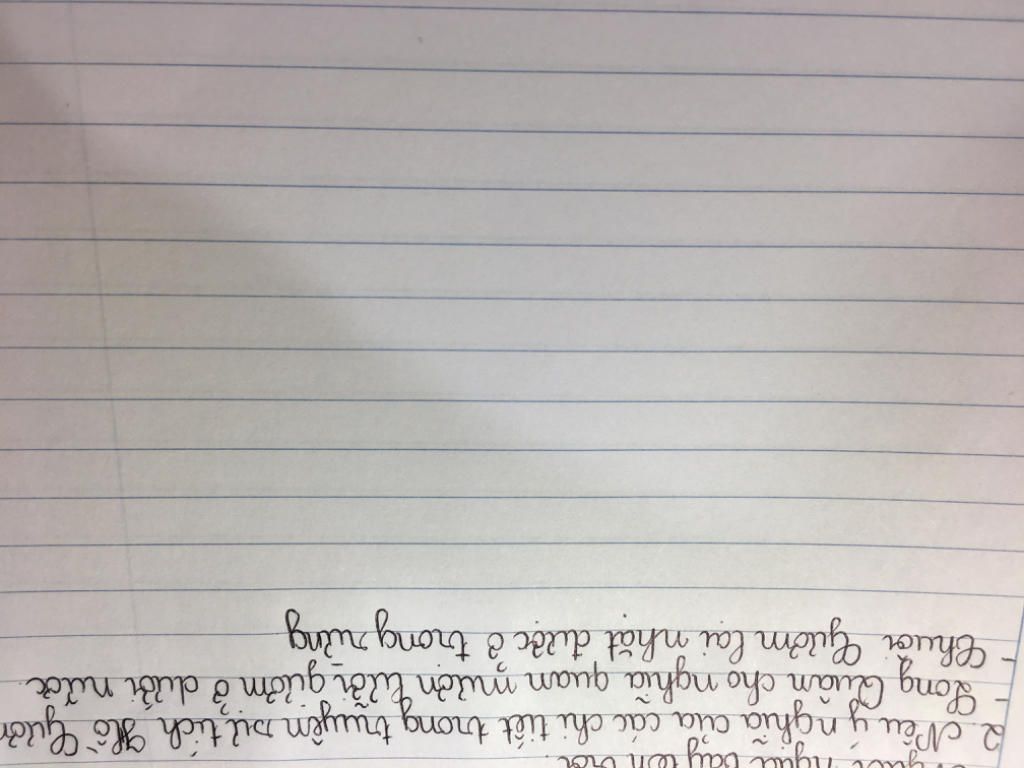 người bay lên trời.
2. Nêu ý nghĩa của các chi tiết trong truyện sự tích Hồ Gươm
- Long Quân cho nghĩa quan mượn lưỡi gươm ở dưới nước
- Chuôi Gươm lại nhặt được ở trong rừng